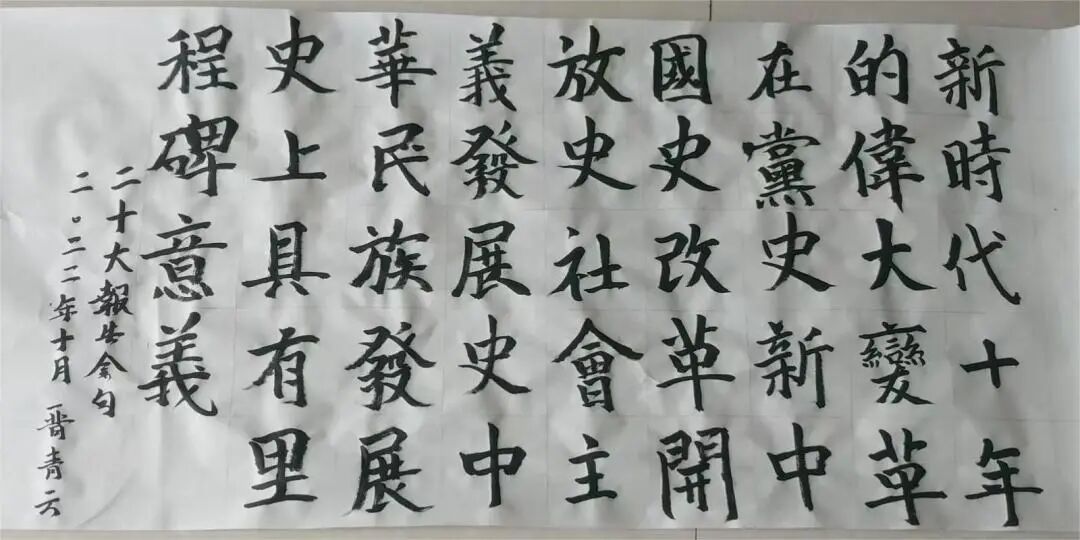 新時代十年
的偉大變革
在黨史新中
國史改革開
放史社會主
義發展史中
華民族發展
史上具有里
程碑意義
二十大報告金句
二〇二二年十月 青云